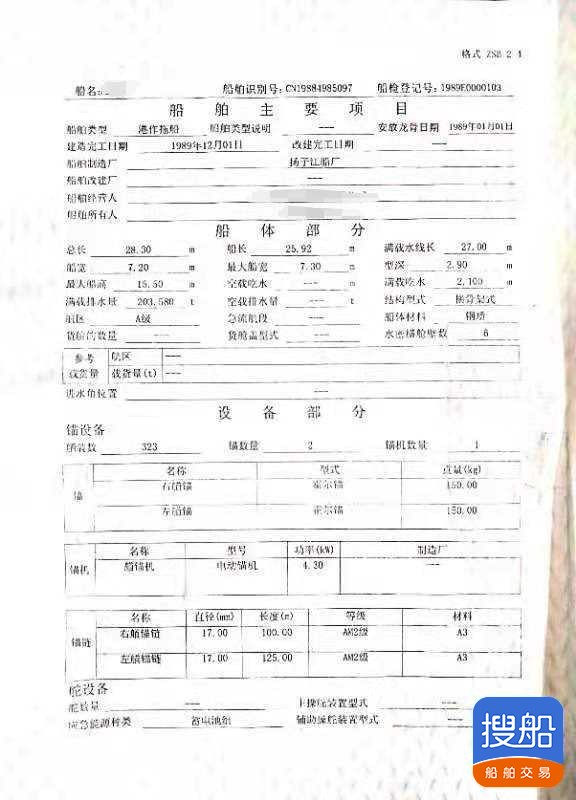 格式 ZSB 2-1
船名: 船舶识别号: CN19884985097 船检登记号: 1989E0000103
船舶主要项目
船舶类型 港作拖船 船舶类型说明 --- 安放龙骨日期 1989年01月01日
建造完工日期 1989年12月01日 改建完工日期 ---
船舶制造厂 扬子江船厂
船舶改建厂 ---
船舶经营人
船舶所有人
船体部分
总长 28.30 m 船长 25.92 m 满载水线长 27.00 m
船宽 7.20 m 最大船宽 7.30 m 型深 2.90 m
最大船高 15.50 m 空载吃水 --- m 满载吃水 2.100 m
满载排水量 203.580 t 空载排水量 --- t 结构型式 横骨架式
航区 A级 急流航段 --- 船体材料 钢质
货舱的数量 --- 货舱盖型式 --- 水密横舱壁数 6
参考 航区 ---
载货量 载货量(t) ---
进水角位置 ---
设备部分
锚设备
舾装数 323 锚数量 2 锚机数量 1
名称 型式 重量(kg)
锚
右艏锚 霍尔锚 150.00
左艏锚 霍尔锚 150.00
名称 型号 功率(kW) 制造厂
锚机 艏锚机 电动锚机 4.30 ---
名称 直径(mm) 长度(m) 等级 材料
锚链
右艏锚链 17.00 100.00 AM2级 A3
左艏锚链 17.00 125.00 AM2级 A3
舵设备
舵数量 --- 主操舵装置型式 ---
应急能源种类 蓄电池组 辅助操舵装置型式 ---
搜船
船舶交易